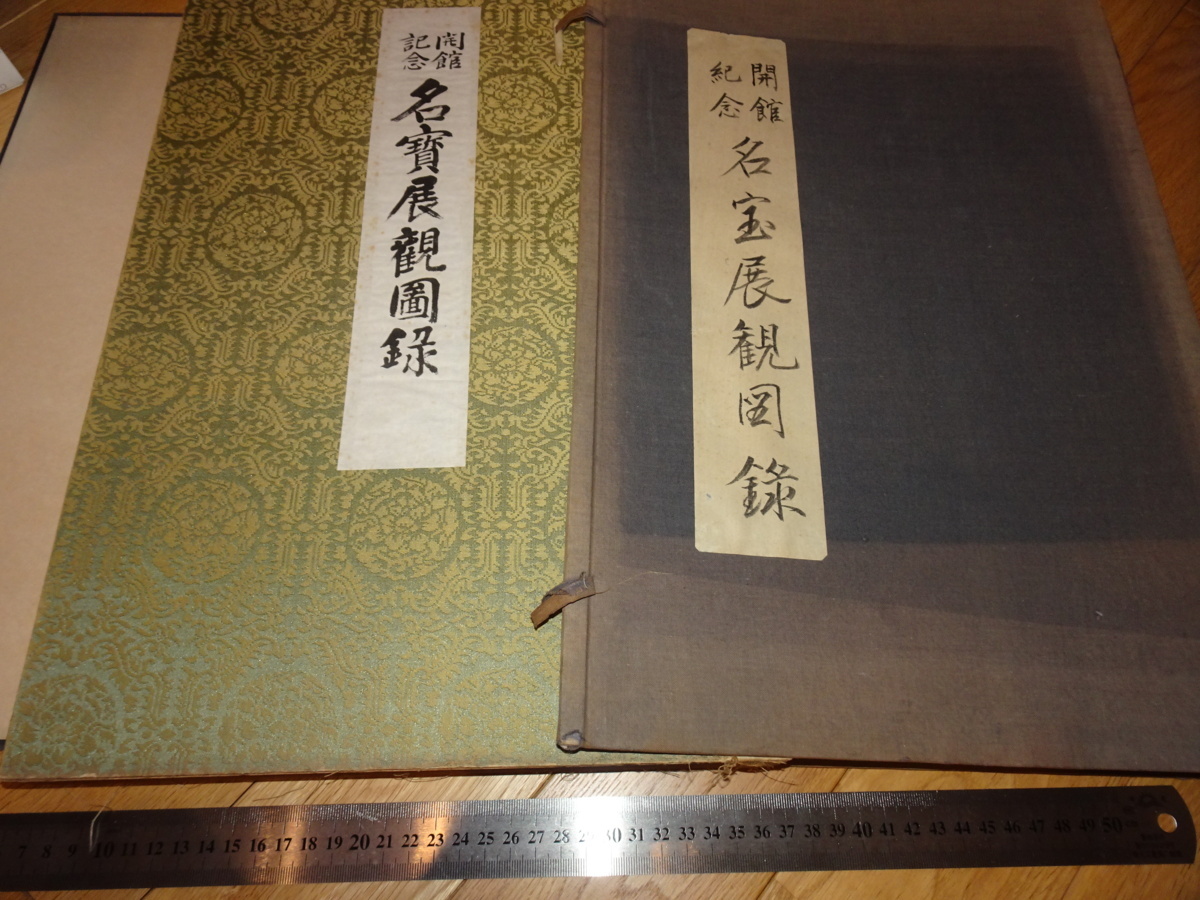 開館
記念
名寶展觀圖錄
開館
紀念
名宝展観図録
7 8 9 10 11 12 13 14 15 16 17 18 19 20 21 22 23 24 25 26 27 28 29 30 31 32 33 34 35 36 37 38 39 40 41 42 43 44 45 46 47 48 49 50